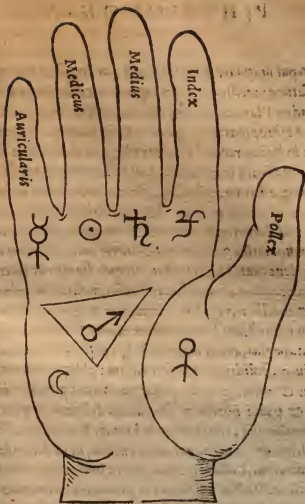 Auricularis
Medicus
Medius
Index
Pollex
☿
☉
♄
♃
♂
☾